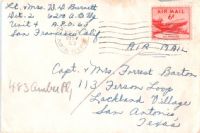 Lt. & Mrs. W. D. Burnett
Det. 2, 6210 A.B.
Unit 4 A.P.O. 63
San Francisco Calif.
AIR MAIL
6¢
AIR MAIL
Capt. & Mrs. Forrest Barton
113 Ferson Loop
Lackland Village
San Antonio,
Texas